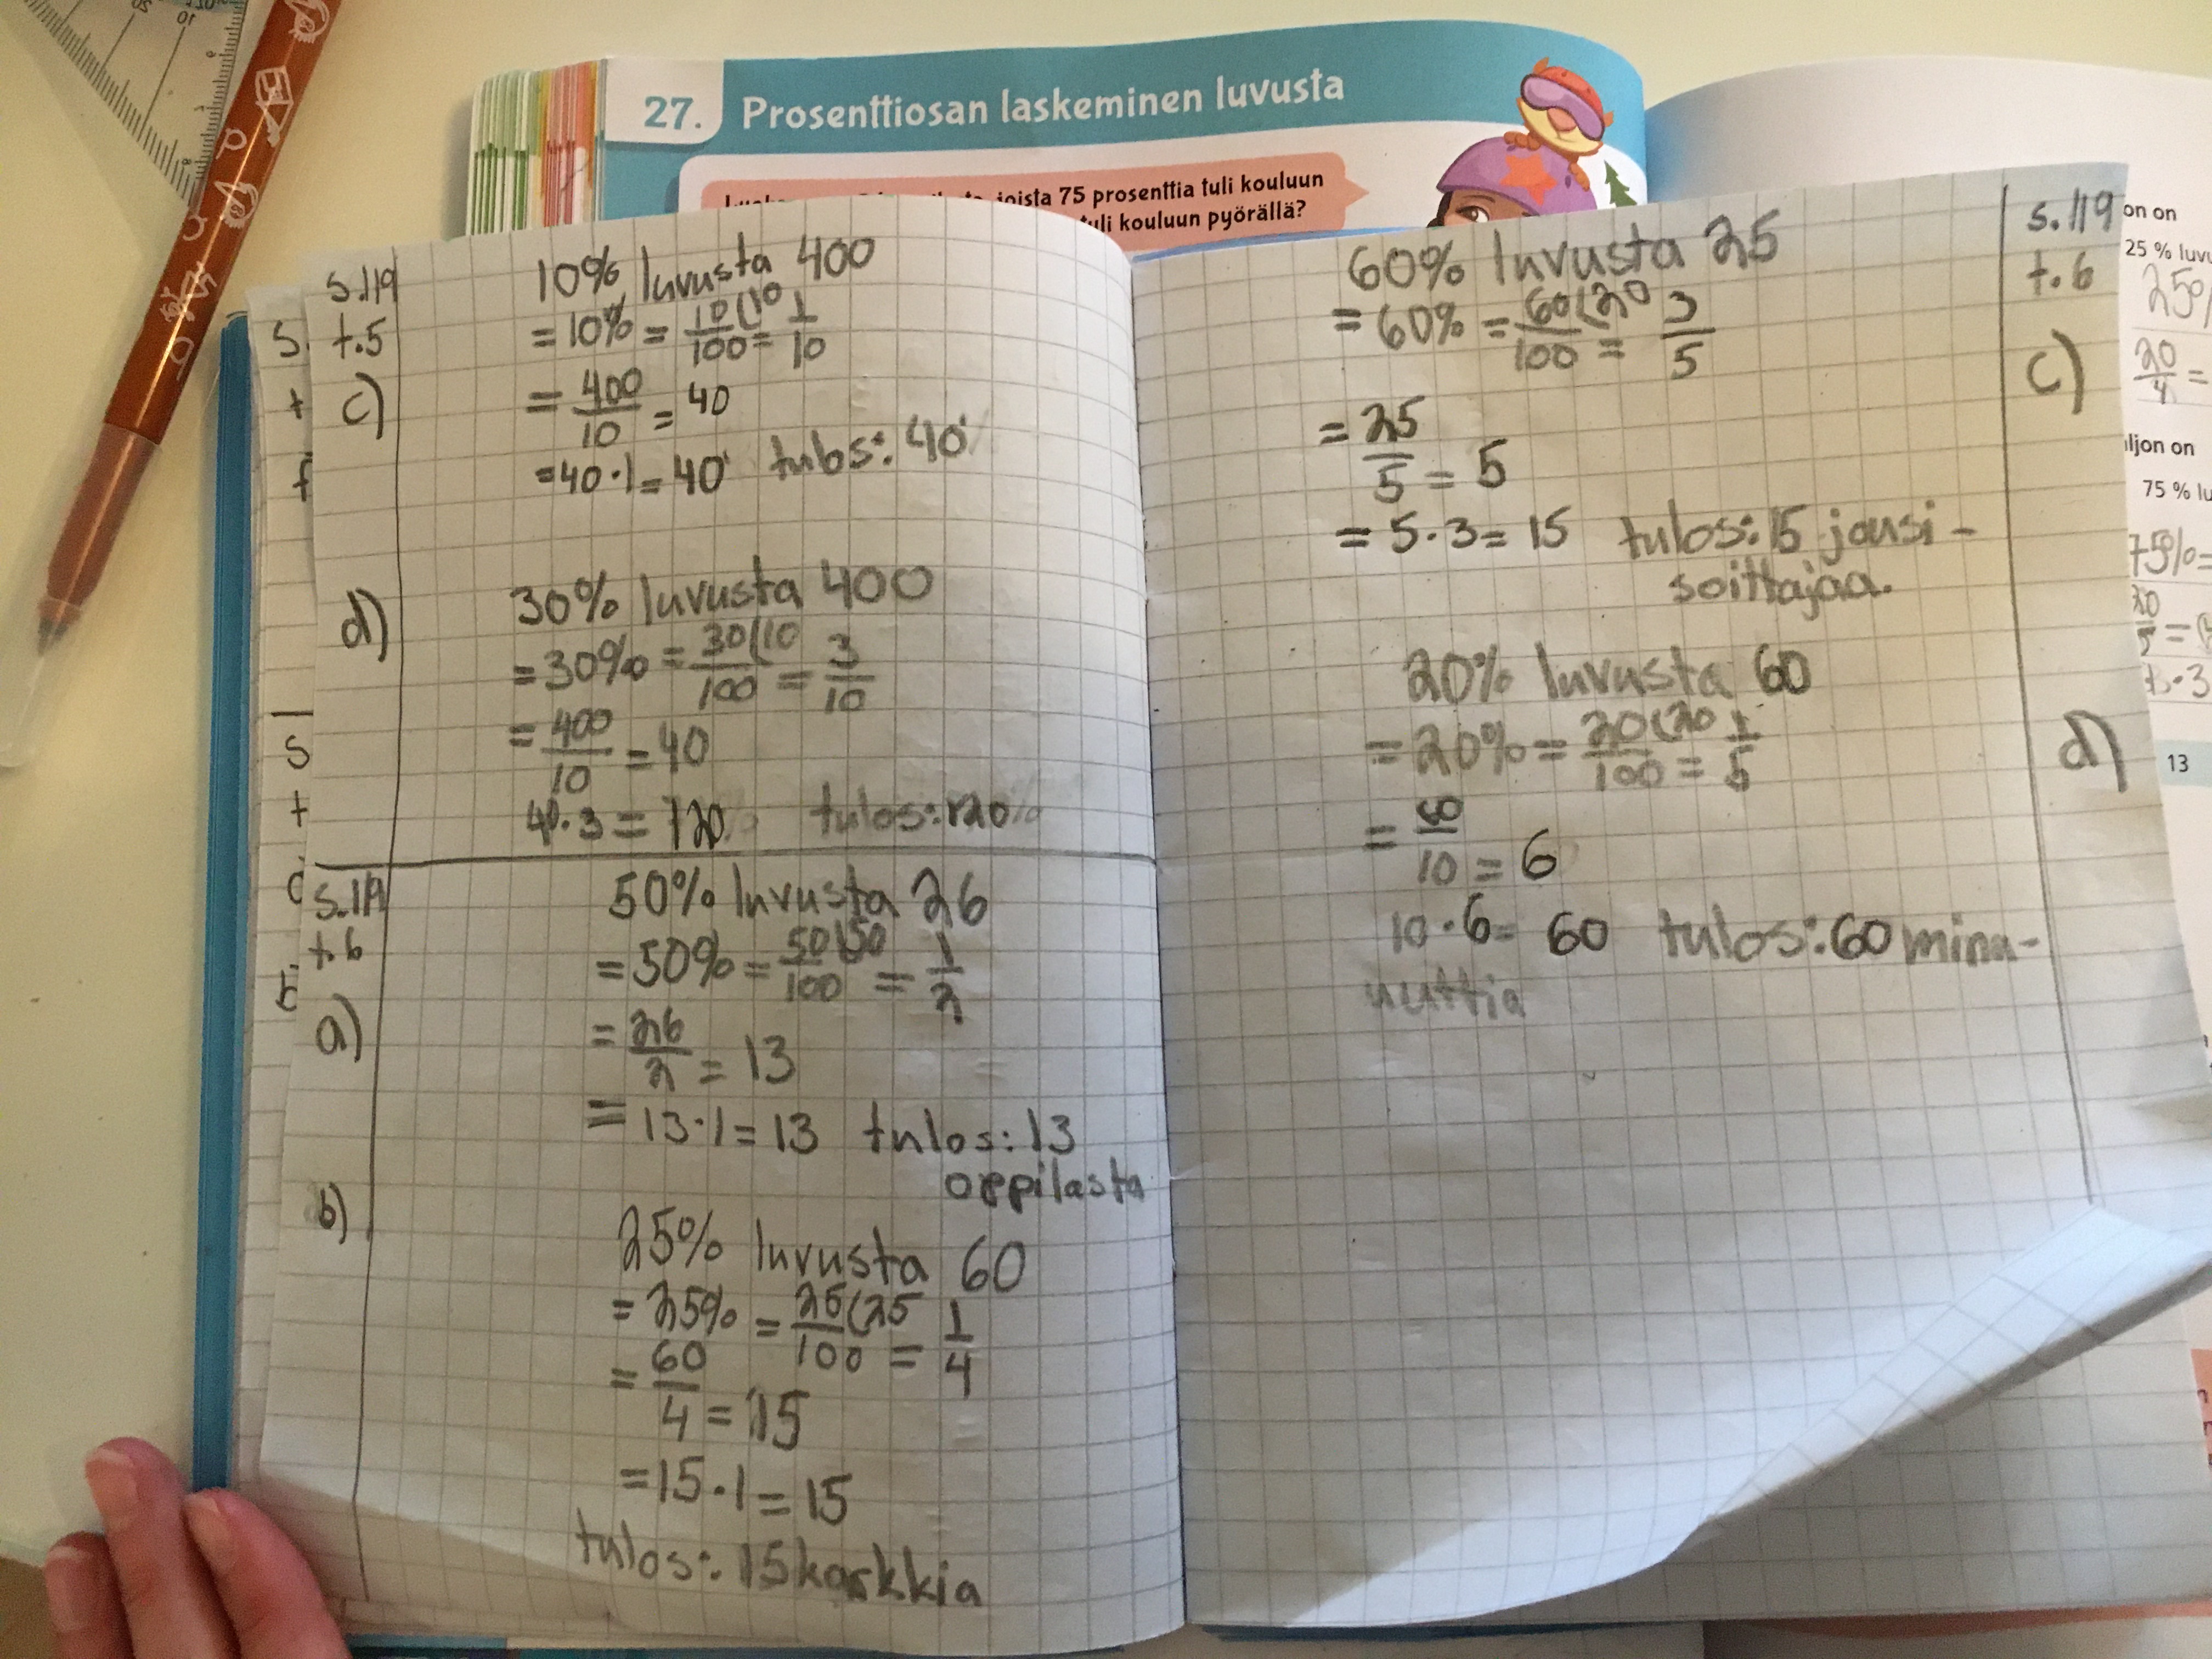 27. Prosenttiosan laskeminen luvusta
joista 75 prosenttia tuli kouluun
tuli kouluun pyörällä?
s.119
t.5
c)
10% luvusta 400
= 10% = 10(10/100 = 1/10
= 400/10 = 40
= 40 · 1 = 40 tulos: 40
d)
30% luvusta 400
= 30% = 30(10/100 = 3/10
= 400/10 = 40
40 · 3 = 120 tulos: 120
s.119
t.6
a)
50% luvusta 26
= 50% = 50(50/100 = 1/2
= 26/2 = 13
= 13 · 1 = 13 tulos: 13
oppilasta
b)
25% luvusta 60
= 25% = 25(25/100 = 1/4
= 60/4 = 15
= 15 · 1 = 15
tulos: 15 karkkia
s.119
t.6
c)
60% luvusta 25
= 60% = 60(20/100 = 3/5
= 25/5 = 5
= 5 · 3 = 15 tulos: 15 jousi-
soittajaa.
d)
20% luvusta 60
= 20% = 20(20/100 = 1/5
= 60/10 = 6
10 · 6 = 60 tulos: 60 minu-
nuttia
on on
25 % luvu
25%
20/4 =
ljon on
75 % lu
75% =
· 3
13